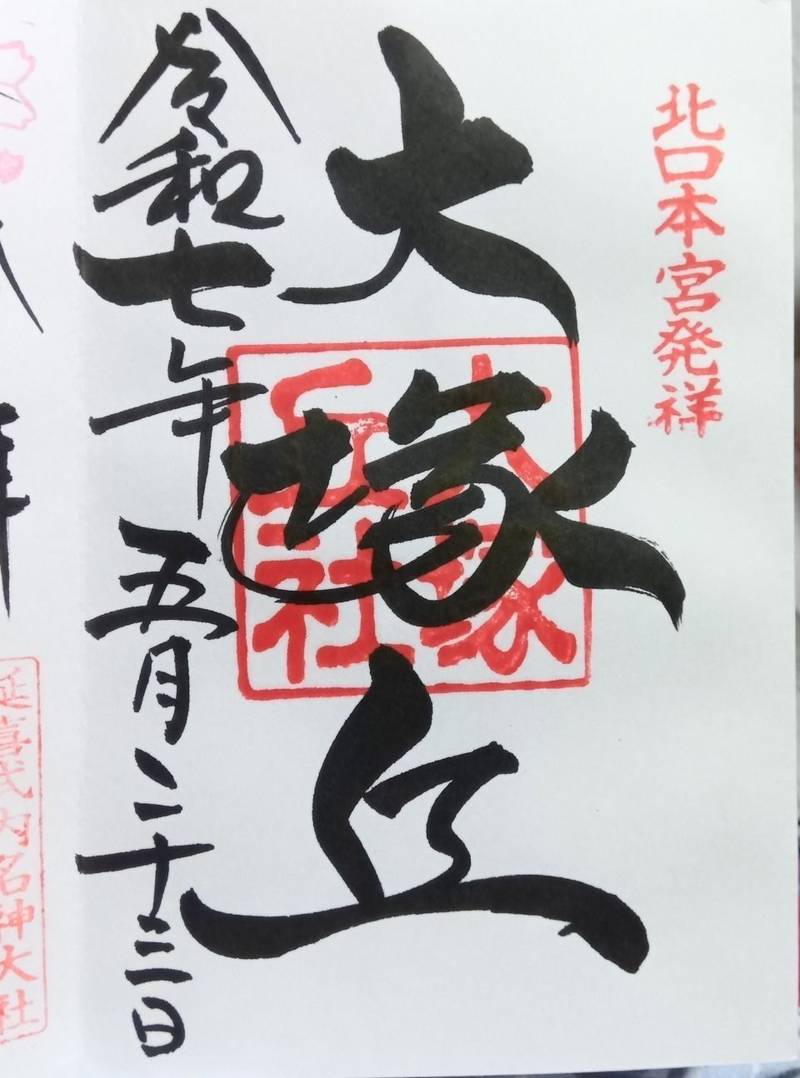 北口本宮発祥
大塚丘
大塚
丘社
令和七年五月二十三日
延喜式内名神大社